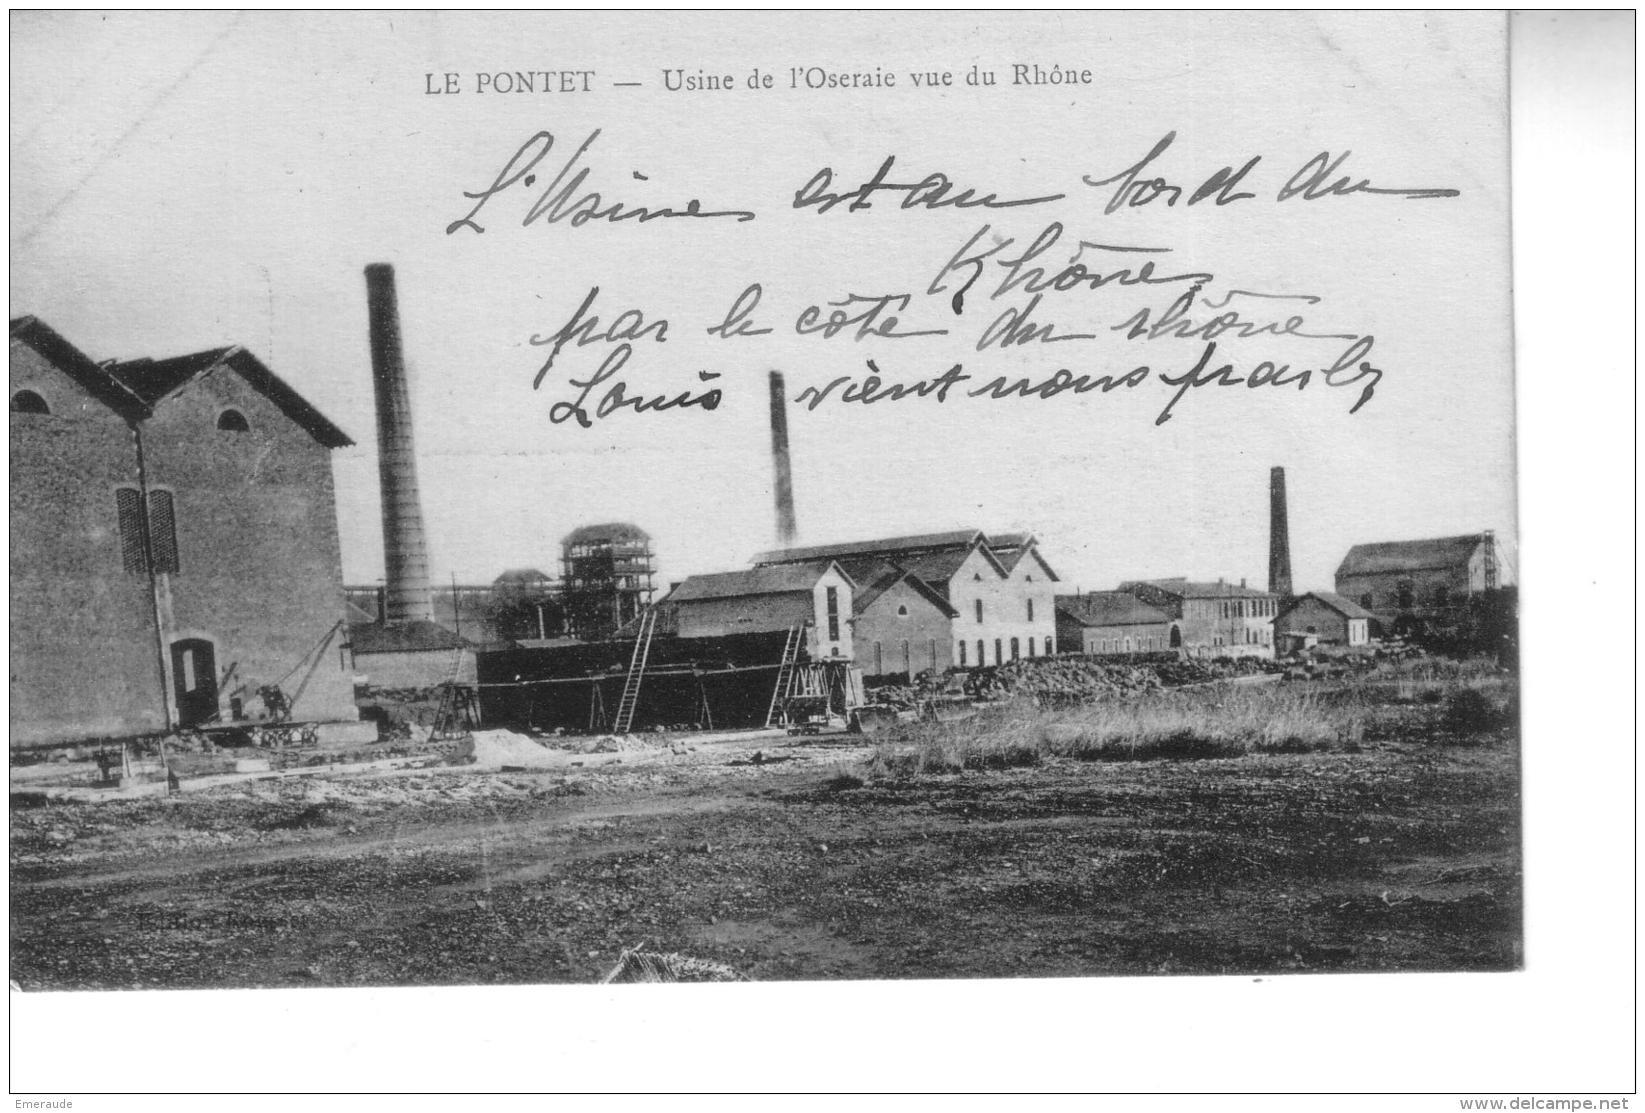 LE PONTET — Usine de l'Oseraie vue du Rhône
L'Usine est au bord du
Rhône
par le côté du rhône
Louis vient nous parler
Edition
Emeraude
www.delcampe.net